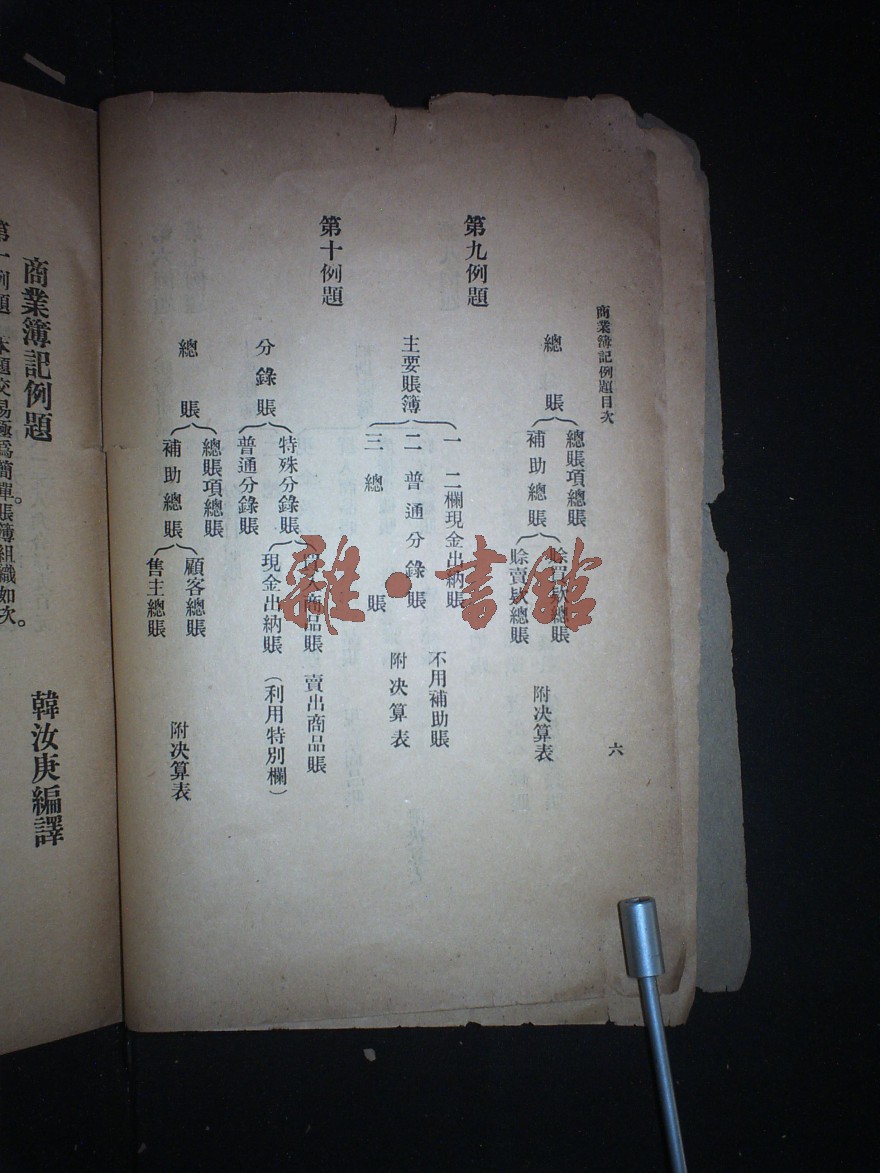 商業簿記例題目次
六
總賬
總賬項總賬
補助總賬
賒買欵總賬
賒賣欵總賬
附決算表
第九例題
主要賬簿
一 二欄現金出納賬
二 普通分錄賬
三 總賬
不用補助賬
附決算表
第十例題
分錄賬
特殊分錄賬
買入商品賬 賣出商品賬
現金出納賬(利用特別欄)
普通分錄賬
總賬
總賬項總賬
補助總賬
顧客總賬
售主總賬
附決算表
商業簿記例題
韓汝庚編譯
第一例題 本題交易極爲簡單。賬簿組織如次。
雜·書館